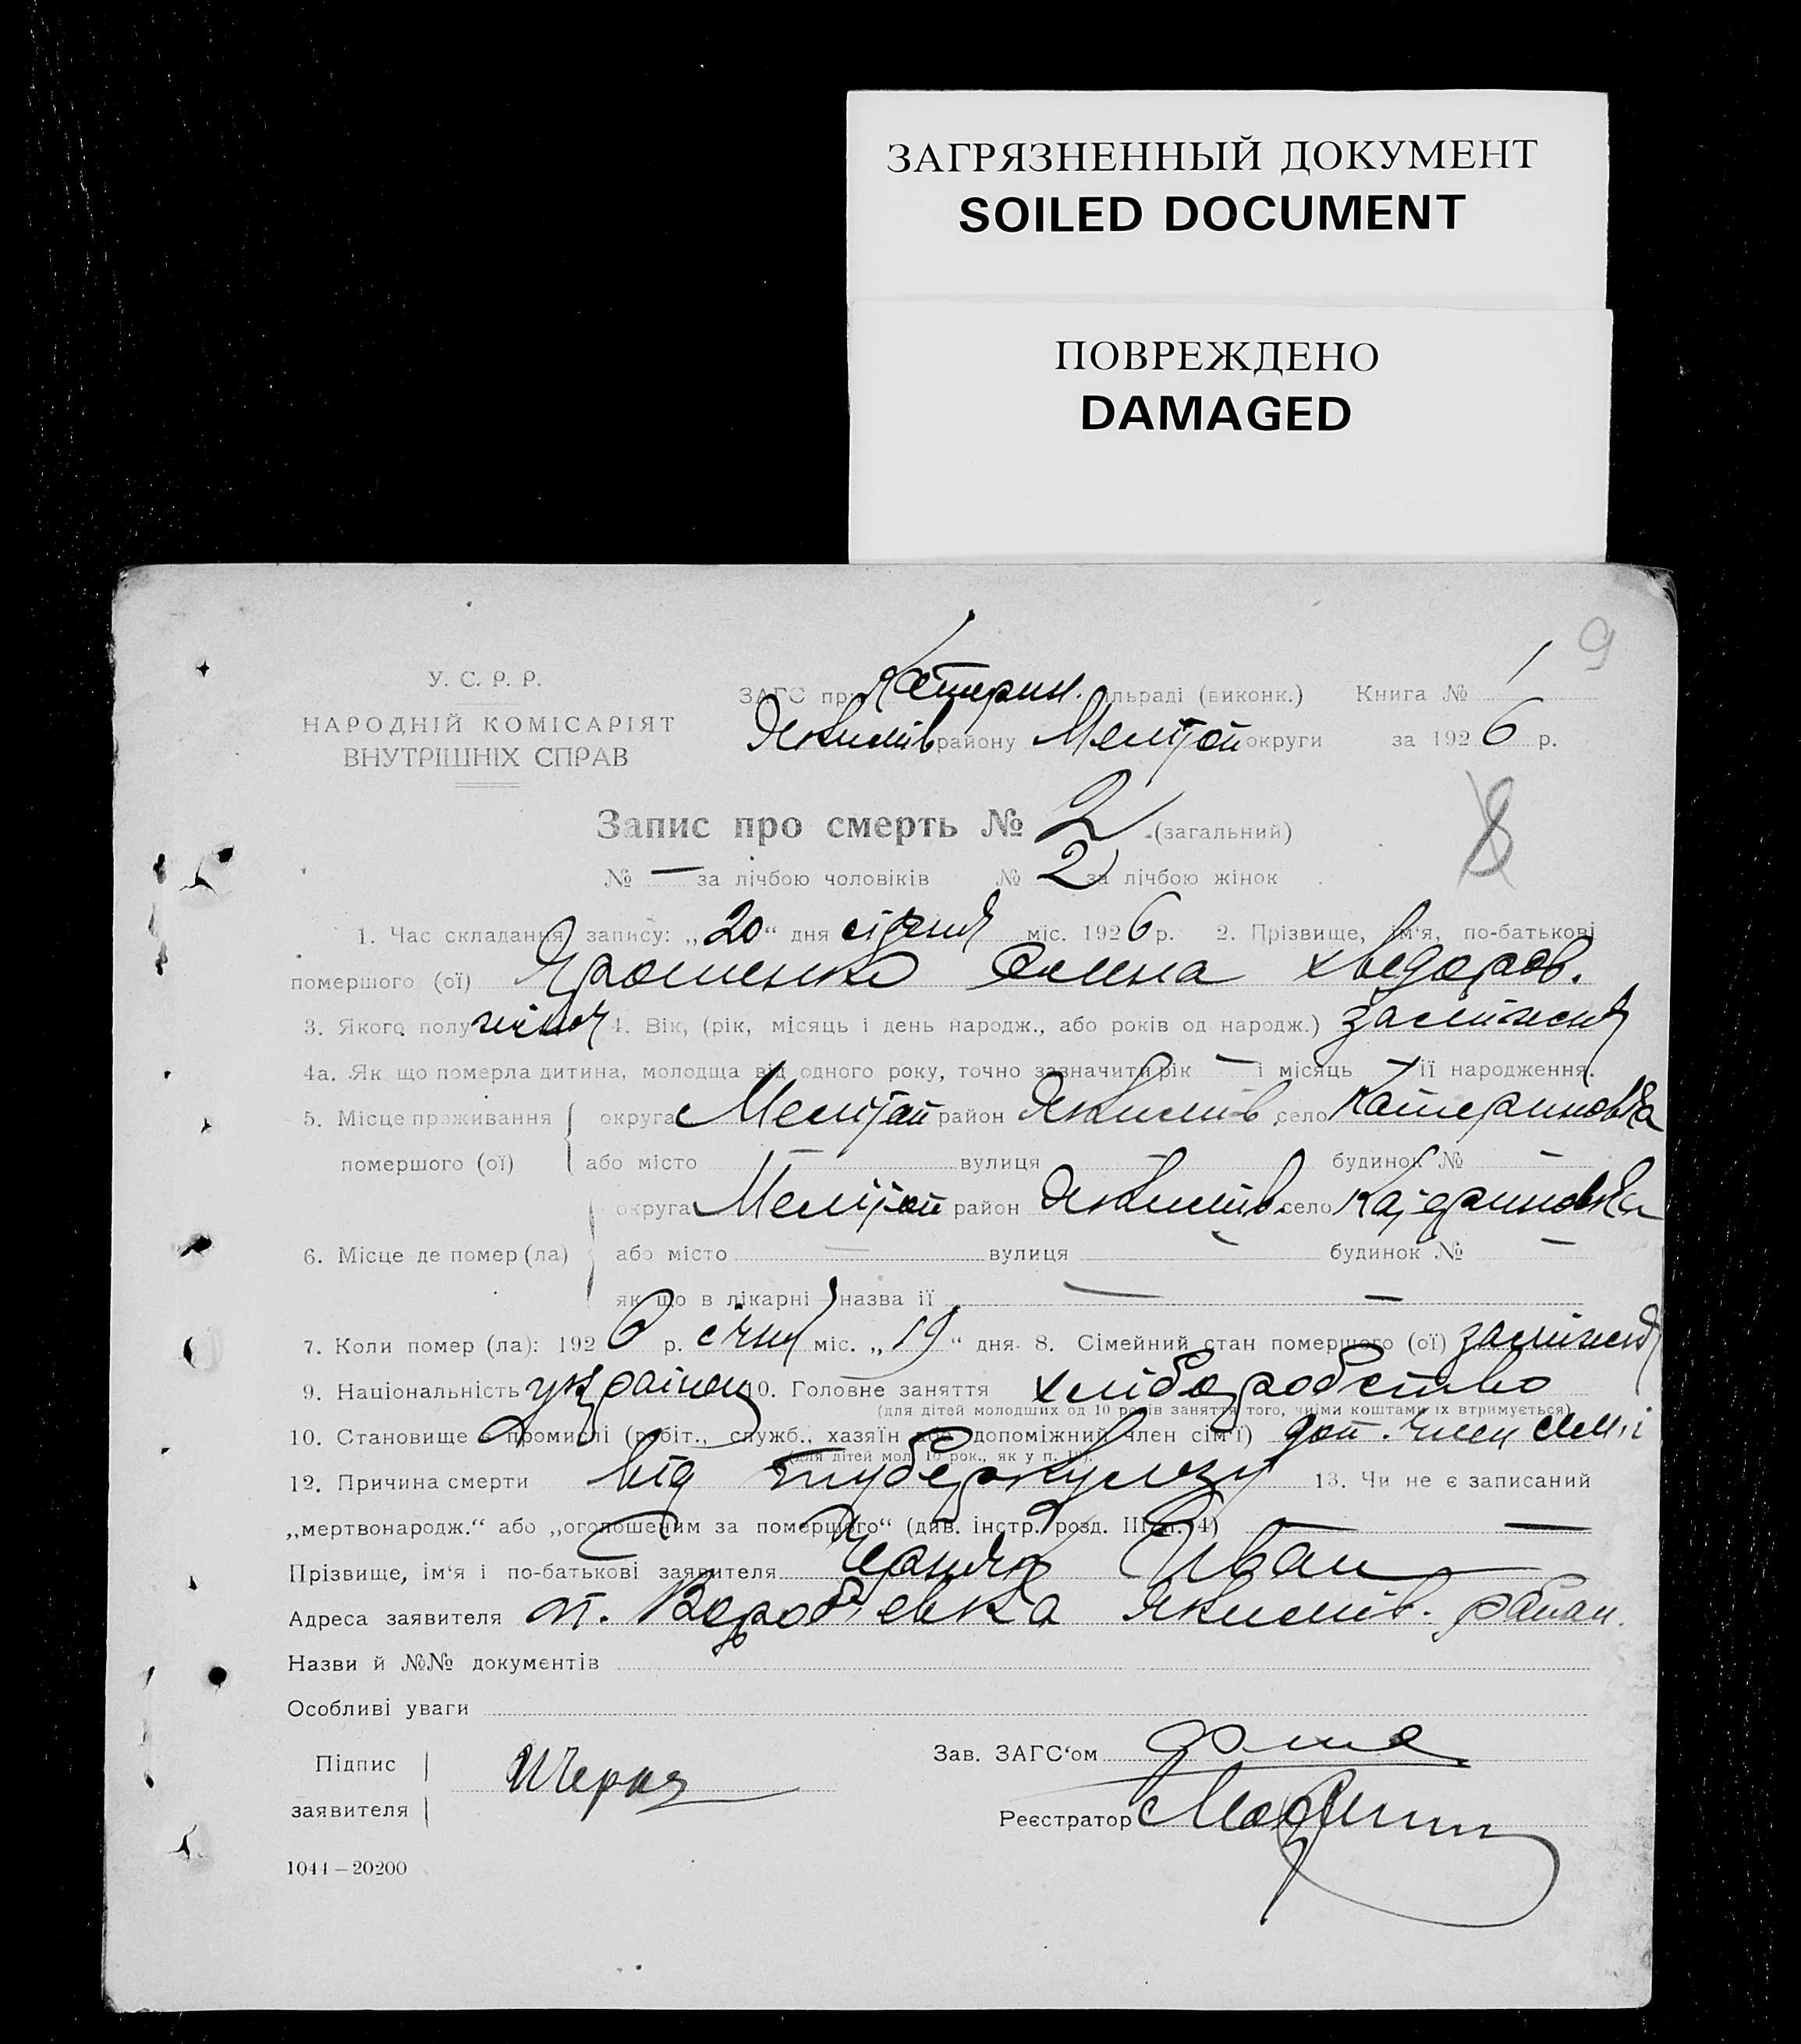 ЗАГРЯЗНЕННЫЙ ДОКУМЕНТ
SOILED DOCUMENT
ПОВРЕЖДЕНО
DAMAGED
9
У. С. Р. Р.
НАРОДНІЙ КОМІСАРІЯТ
ВНУТРІШНІХ СПРАВ
ЗАГС при Катерин. сільраді (виконк.) Книга № 1
Якимів району Мелітоп округи за 1926 р.
8
Запис про смерть № 2 (загальний)
№ — за лічбою чоловіків № 2 за лічбою жінок
1. Час складання запису: „20“ дня січня міс. 1926 р. 2. Прізвище, ім‘я, по-батькові
помершого (ої) Ярошенко Олена Хведоров.
3. Якого полу жіноч 4. Вік, (рік, місяць і день народж., або років од народж.) заміжня
4а. Як що померла дитина, молодща від одного року, точно зазначити рік — і місяць — її народження.
5. Місце проживання помершого (ої) округа Мелітоп район Якимів село Катериновка
або місто — вулиця — будинок № —
6. Місце де помер (ла) округа Мелітоп район Якимів. село Катериновка
або місто — вулиця — будинок № —
як що в лікарні назва її — —
7. Коли помер (ла): 1926 р. січня міс. „19“ дня. 8. Сімейний стан помершого (ої) заміжня
9. Національність українц 10. Головне заняття хліборобство
(для дітей молодших од 10 років заняття того, чиїми коштами їх втримується)
10. Становище в промислі (робіт., служб., хазяїн або допоміжний член сім‘ї) доп. член семі
(для дітей мол. 10 рок., як у п. 10).
12. Причина смерти від туберкульозу 13. Чи не є записаний
„мертвонародж.“ або „оголошеним за померщого“ (див. інстр. розд. III п. 4) — —
Прізвище, ім‘я і по-батькові заявителя Черняк Иван
Адреса заявителя Воробьевка Якимів. район.
Назви й №№ документів
Особливі уваги
Підпис заявителя
Зав. ЗАГС‘ом
Реєстратор
1044 – 20200